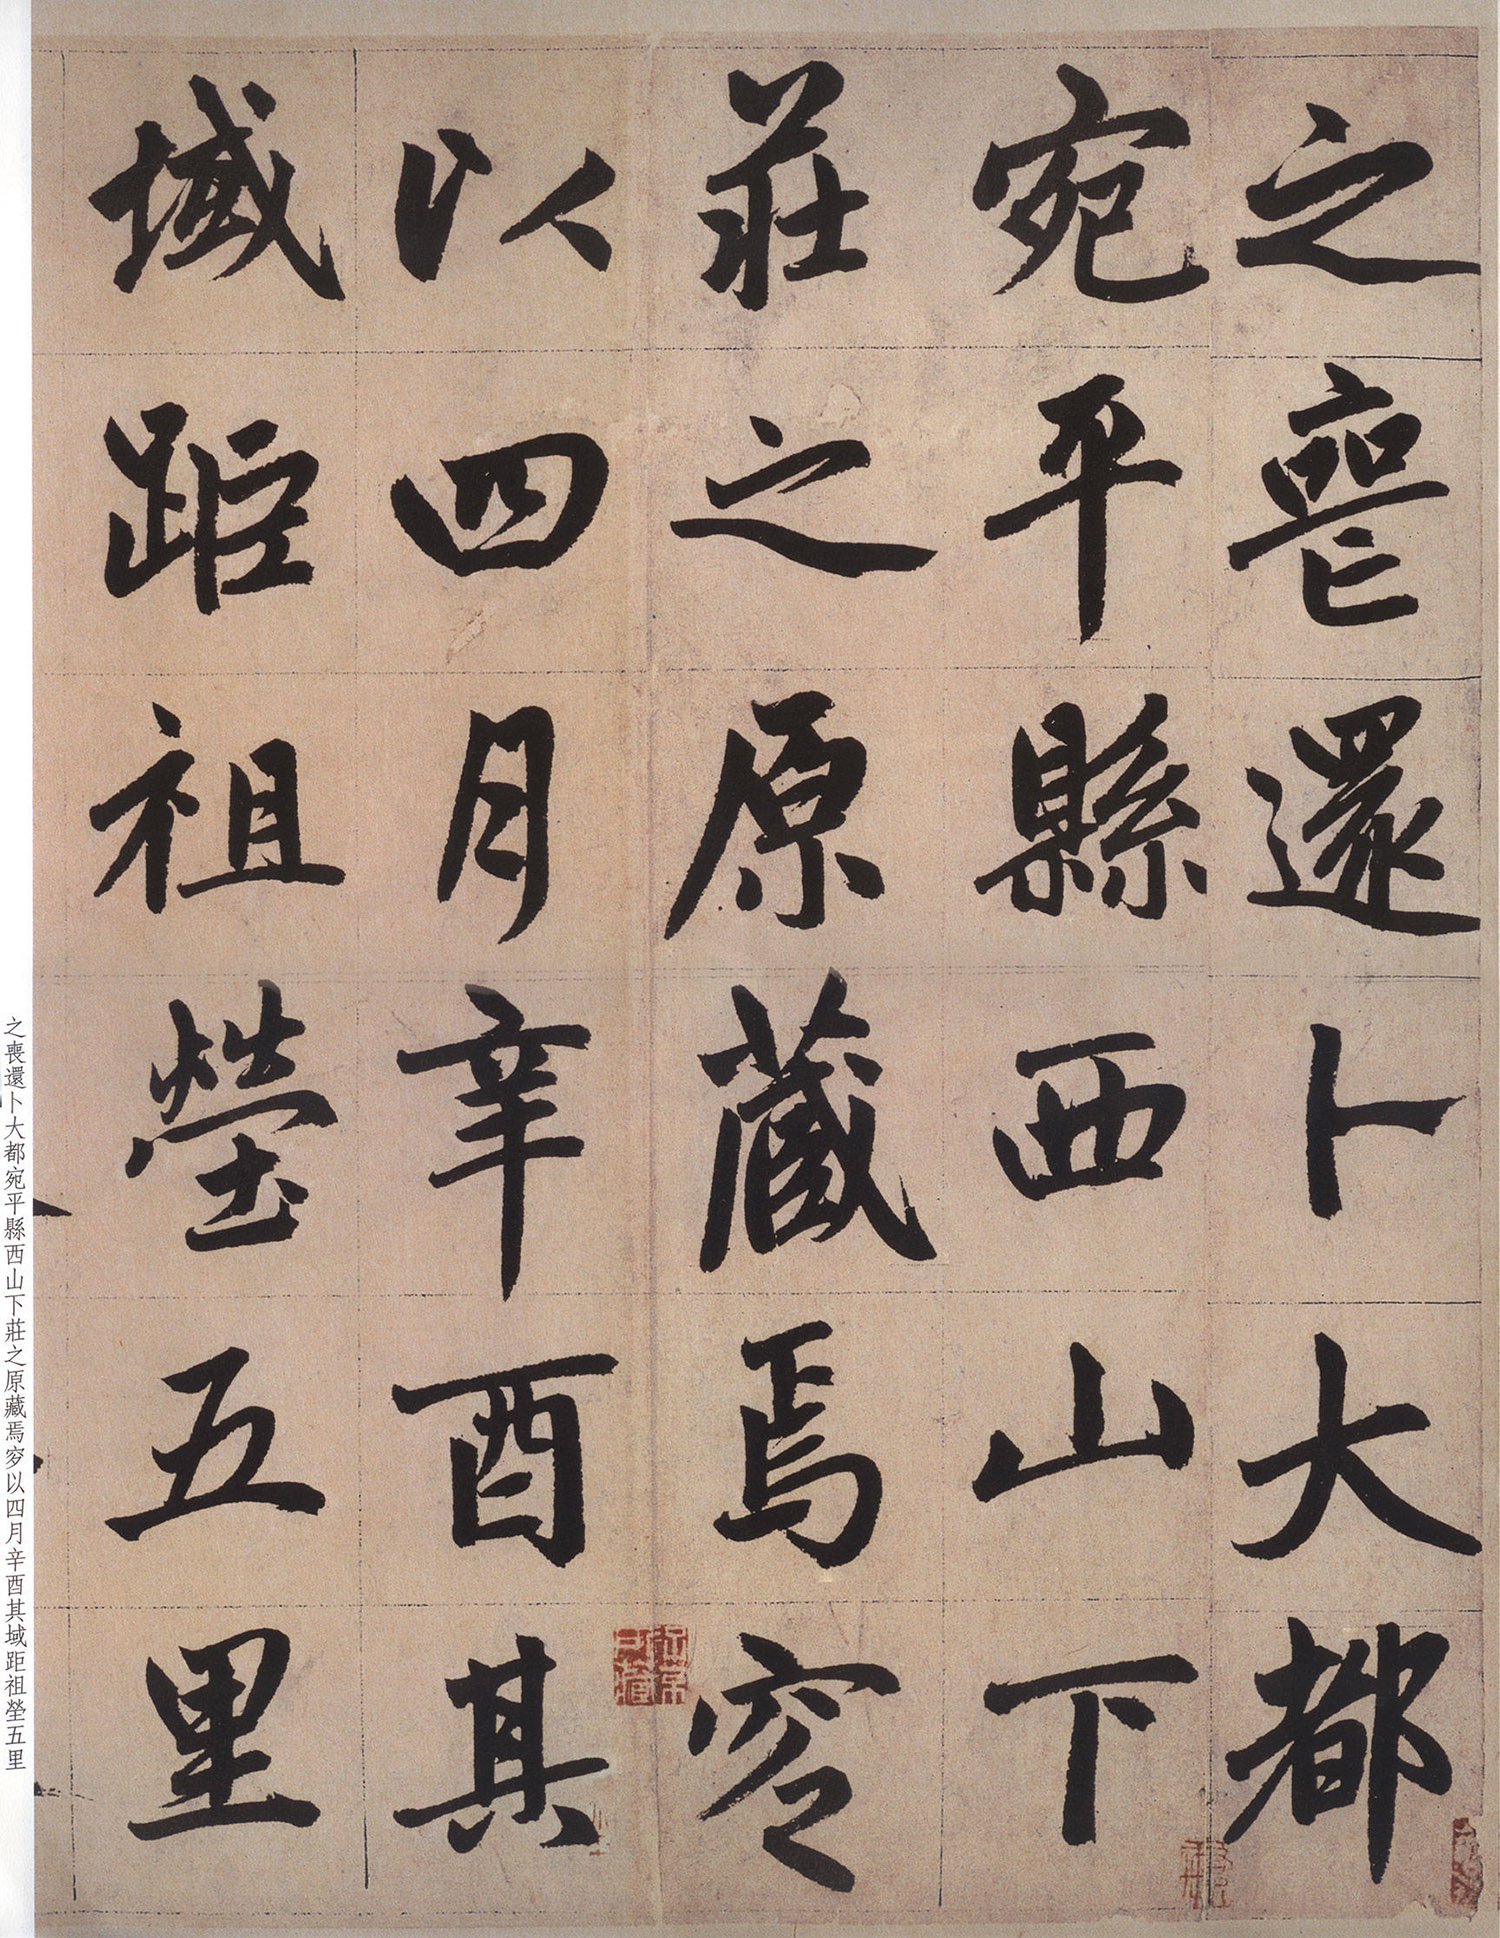 之喪還卜大都
宛平縣西山下
莊之原藏焉穸
以四月辛酉其
域距祖塋五里
之喪還卜大都宛平縣西山下莊之原藏焉穸以四月辛酉其域距祖塋五里